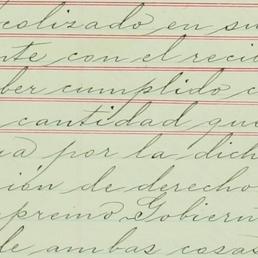 colizado en su
nte con el reci
ber cumplido c
cantidad que
ra por la dich
ión de derecho
upremo Gobiern
de ambas cosas